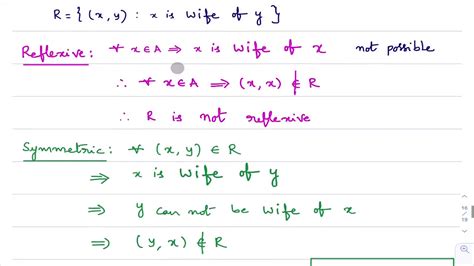 R = { (x, y) : x is wife of y }
Reflexive: ∀ x∈A ⇒ x is wife of x not possible
∴ ∀ x∈A ⇒ (x, x) ∉ R
∴ R is not reflexive
Symmetric: ∀ (x, y) ∈ R
⇒ x is wife of y
⇒ y can not be wife of x
⇒ (y, x) ∉ R